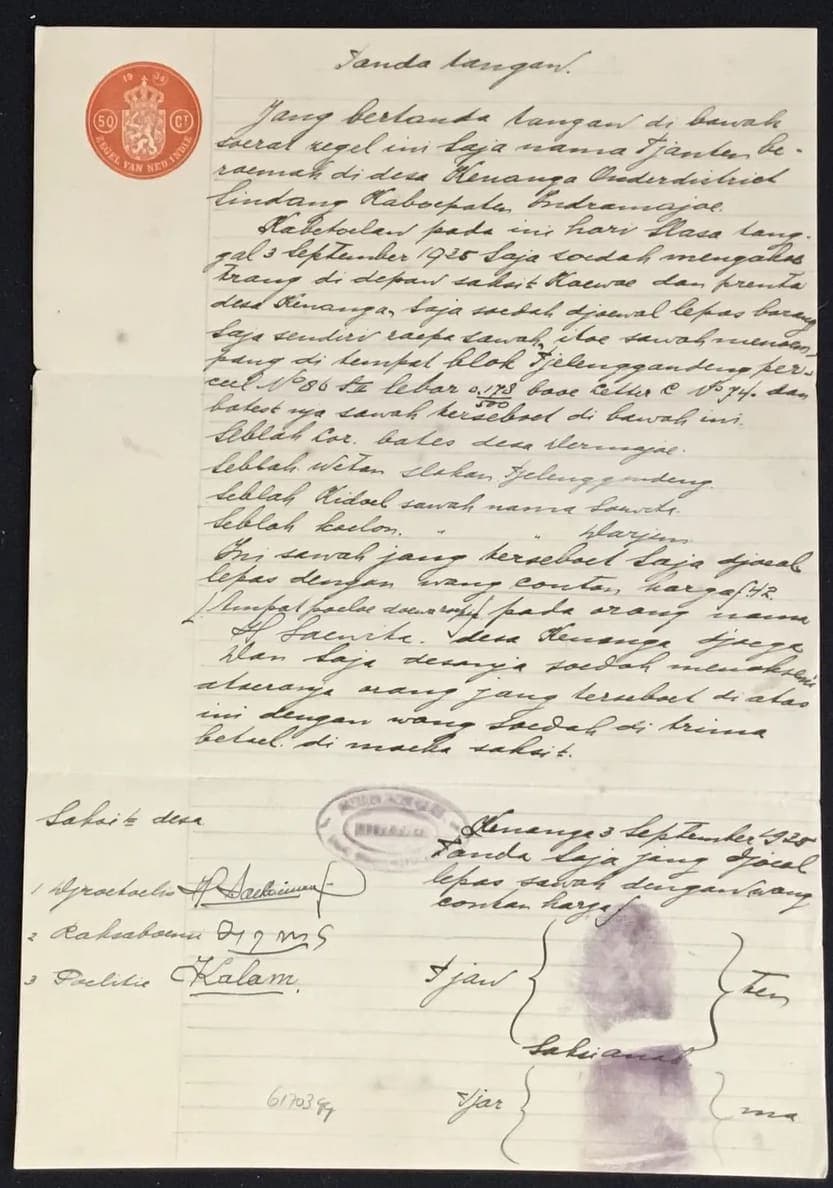 Tanda tangan.
19 34
50 CT
ZEGEL VAN NED. INDIË
Jang bertanda tangan di bawah
soerat zegel ini Saja nama Tjanten be-
roemah di desa Kenanga Onderdistrict
Sindang Kaboepaten Indramajoe.
Kabetoelan pada ini hari Slasa tang-
gal 3 September 1935 Saja soedah mengakoe
trang di depan saksi2 Koewoe dan prenta
desa Kenanga, Saja soedah djoewal lepas barang
Saja sendiri roepa sawah, itoe sawah
pang di tempat blok Tjelenggandeng per-
ceel No 86 lebar 0.178/500 Letter C No 74. dan
batesnja sawah terseboet di bawah ini.
Seblah Lor. bates desa Dermajoe.
Seblah Wetan Tjelenggandeng
Seblah Kidoel sawah nama Sawita.
Seblah koelon. " " Warjem
Ini sawah jang terseboet Saja djoeal
lepas dengan wang contan harga f 42.
(Ampat poeloe doewa roepiah) pada orang nama
H Saewita. desa Kenanga djoega
Dan Saja desanja soedah menakseni
atoeranja orang jang terseboet di atas
ini dengan wang soedah di trima
betoel. di moeka saksi2.
Saksi2 desa
Kenanga 3 September 1935
Tanda Saja jang djoeal
lepas sawah dengan wang
contan harga f
1 Djroetoelis
2 Raksaboemi
3 Politie Kalam.
Tjan { } ten
Saksi anak
Tjar { } ma
61703